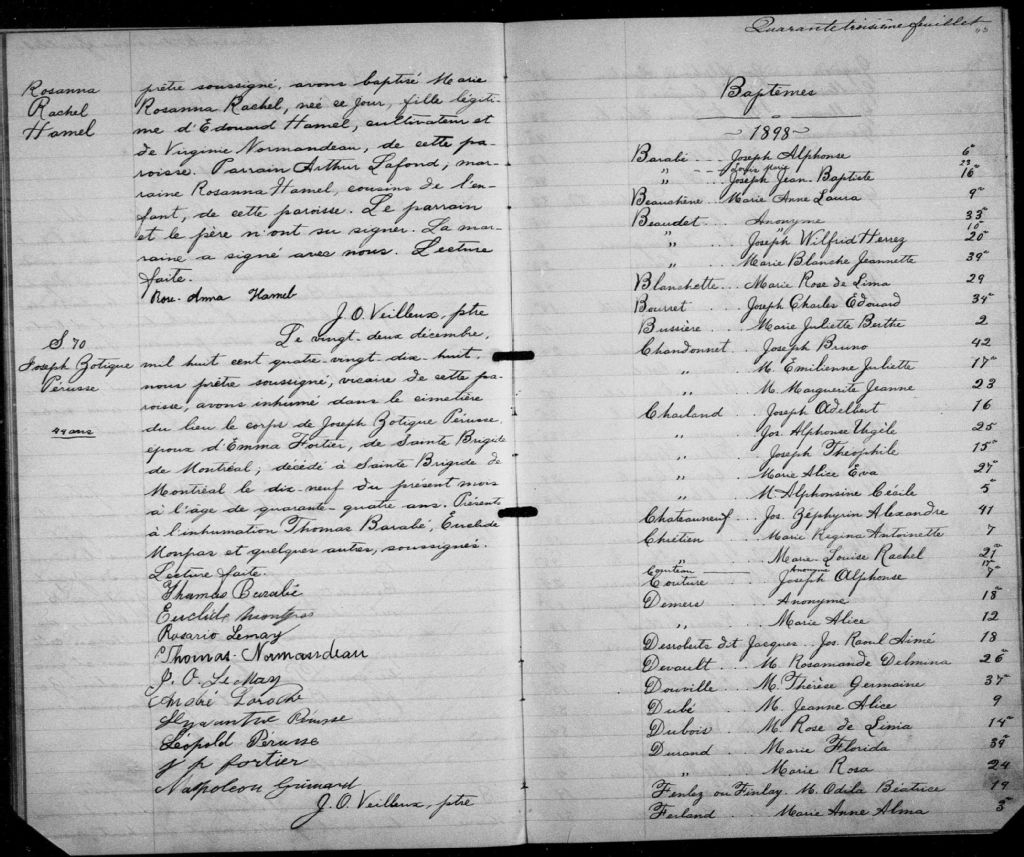 Rosanna
Rachel
Hamel
prêtre soussigné, avons baptisé Marie
Rosanna Rachel, née ce jour, fille légiti-
me d'Edouard Hamel, cultivateur et
de Virginie Normandeau, de cette pa-
roisse. Parrain Arthur Lafond, mar-
raine Rosanna Hamel, cousins de l'en-
fant, de cette paroisse. Le parrain
et le père n'ont su signer. La mar-
raine a signé avec nous. Lecture
faite.
Rose-Anna Hamel
J. O. Veilleux, ptre
S. 70
Joseph Zotique
Pérusse
44 ans
Le vingt-deux décembre,
mil huit cent quatre-vingt-dix-huit,
nous prêtre soussigné, vicaire de cette pa-
roisse, avons inhumé dans le cimetière
du lieu le corps de Joseph Zotique Pérusse,
époux d'Emma Fortier, de Sainte Brigide
de Montréal; décédé à Sainte Brigide de
Montréal le dix-neuf du présent mois
à l'âge de quarante-quatre ans. Présents
à l'inhumation Thomas Barabé, Euclide
Monpas et quelques autres, soussignés.
Lecture faite.
Thomas Barabé
Euclide Montpas
Rosario Lemay
Thomas Normandeau
J. O. LeMay
André Laroche
Hyacinthe Pérusse
Léopold Pérusse
J P Fortier
Napoléon Guimard
J. O. Veilleux, ptre
Quarante troisième feuillet
43
Baptêmes
1898
Barabé ... Joseph Alphonse 6
" -- Louis Marie 23
" .. Joseph Jean-Baptiste 16
Beauchène .. Marie Anne Laura 9
Beaudet ... Anonyme 33
" " 10
" .. Joseph Wilfrid Herrez 20
" .. Marie Blanche Jeannette 39
Blanchette .. Marie Rose de Lima 29
Bourret ... Joseph Charles Edouard 34
Bussière .. Marie Juliette Berthe 2
Chandonnet .. Joseph Bruno 42
" .. M. Emilienne Juliette 17
" .. M. Marguerite Jeanne 23
Charland .. Joseph Adelbert 16
" .. Jos. Alphonse Urgèle 25
" .. Joseph Théophile 15
" .. Marie Alice Eva 27
" .. M. Alphonsine Cécile 5
Chateauneuf .. Jos. Zéphyrin Alexandre 41
Chrétien ... Marie Regina Antoinette 7
" .. Marie-Louise Rachel 21
Comteau — Anonyme 17
Couture ... Joseph Alphonse 7
Demers ... Anonyme 18
" .. Marie Alice 12
Desroberts dit Jacques .. Jos. Raoul Aimé 18
Devault .. M. Rosamande Delmina 26
Douville .. M. Thérèse Germaine 37
Dubé ... M. Jeanne Alice 9
Dubois ... M. Rose de Lima 14
Durand ... Marie Florida 39
" .. Marie Rosa 24
Fenlez ou Finlay. M. Odila Béatrice 19
Ferland ... Marie Anne Alma 3